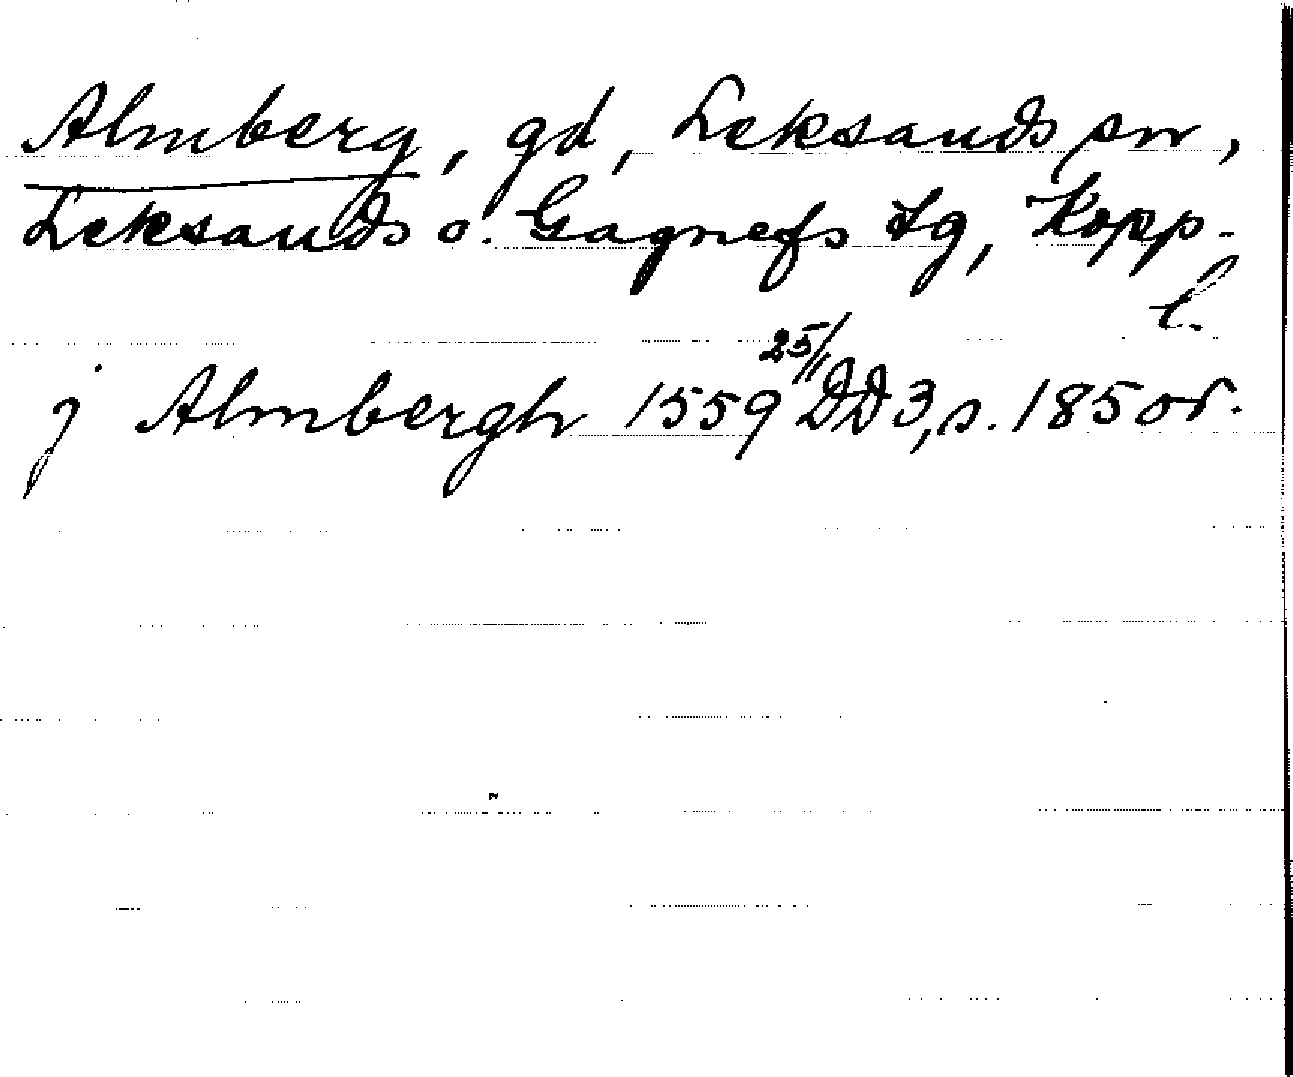 Almberg, gd, Leksands sn,
Leksands o. Gagnefs tg, Kopp.
l.
j Almbergh 1559 25/11 DD 3, s. 185 or.